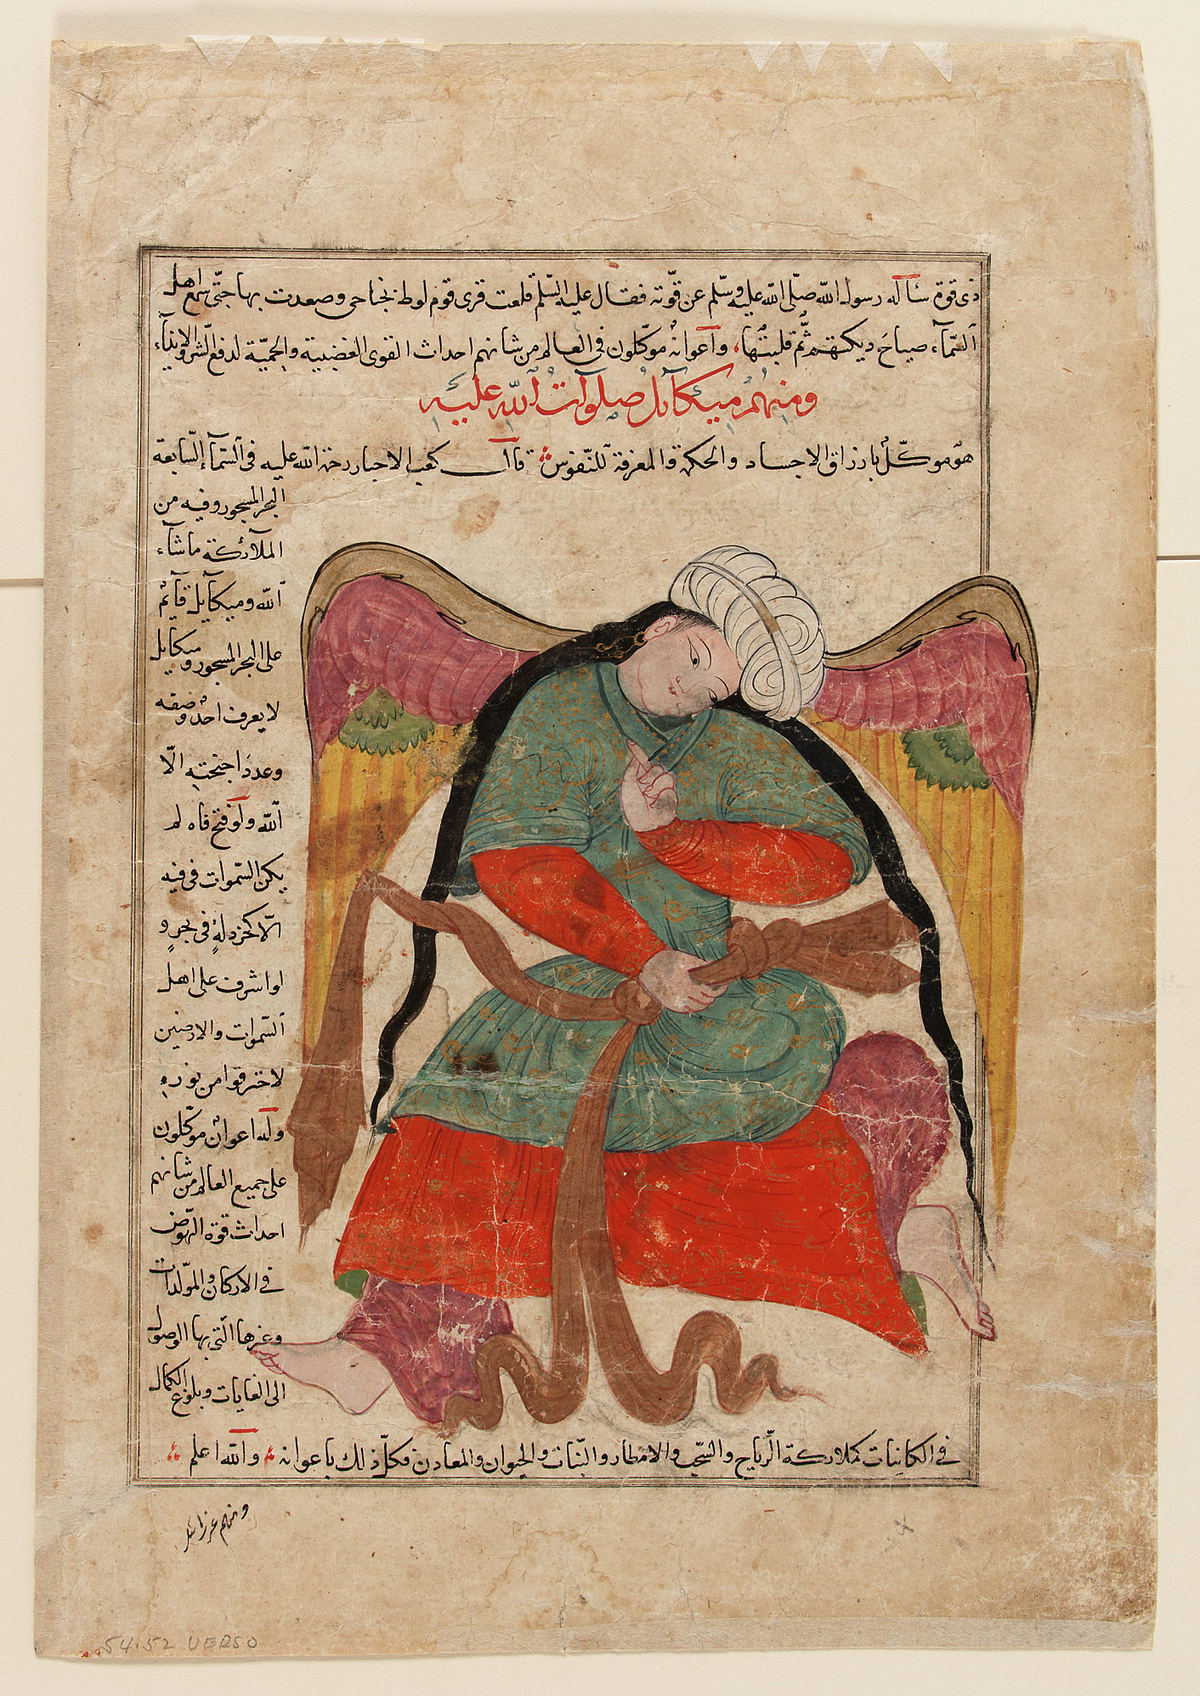 ذى قوة سأله رسول الله صلّى الله عليه وسلّم عن قوّته فقال عليه السّلم قلعت قرى قوم لوط بجناحى وصعدت بها حتّى سمع اهل
السّمآء صياح ديكتهم ثمّ قلبتُها، وأعوانه موكّلون فى العالم من شانهم احداث القوى الغضبية والحميّة لدفع الشر والايذآء
ومنهم ميكآئل صلوات الله عليه
هو موكّل بارزاق الاجساد والحكمة والمعرفة للنّفوس قال كعب الاحبار رحمة الله عليه فى السّمآء السّابعة
البحر المسجور وفيه من
الملآئكة ماشآء
الله وميكآيل قآئم
على البحر المسجور وميكايل
لا يعرف احدٌ وصفه
وعدد اجنحته الّا
الله ولو فتح فاه لم
يكن السّموات فى فيه
الّا كخردلةٍ فى بحرٍ و
لو اشرف على اهل
السّموات والارضين
لاحترقوا من نوره
وله اعوانٌ موكّلون
على جميع العالم من شانهم
احداث قوة النّهوض
فى الاركان والمولّدات
وغيرها الّتى بها الوصول
الى الغايات وبلوغ الكمال
فى الكاينات كملائكة الرّياح والسّحب والامطار والنّبات والحيوان والمعادن فكلّ ذلك باعوانه والله اعلم
ومنهم عزرائيل
54.52 VERSO